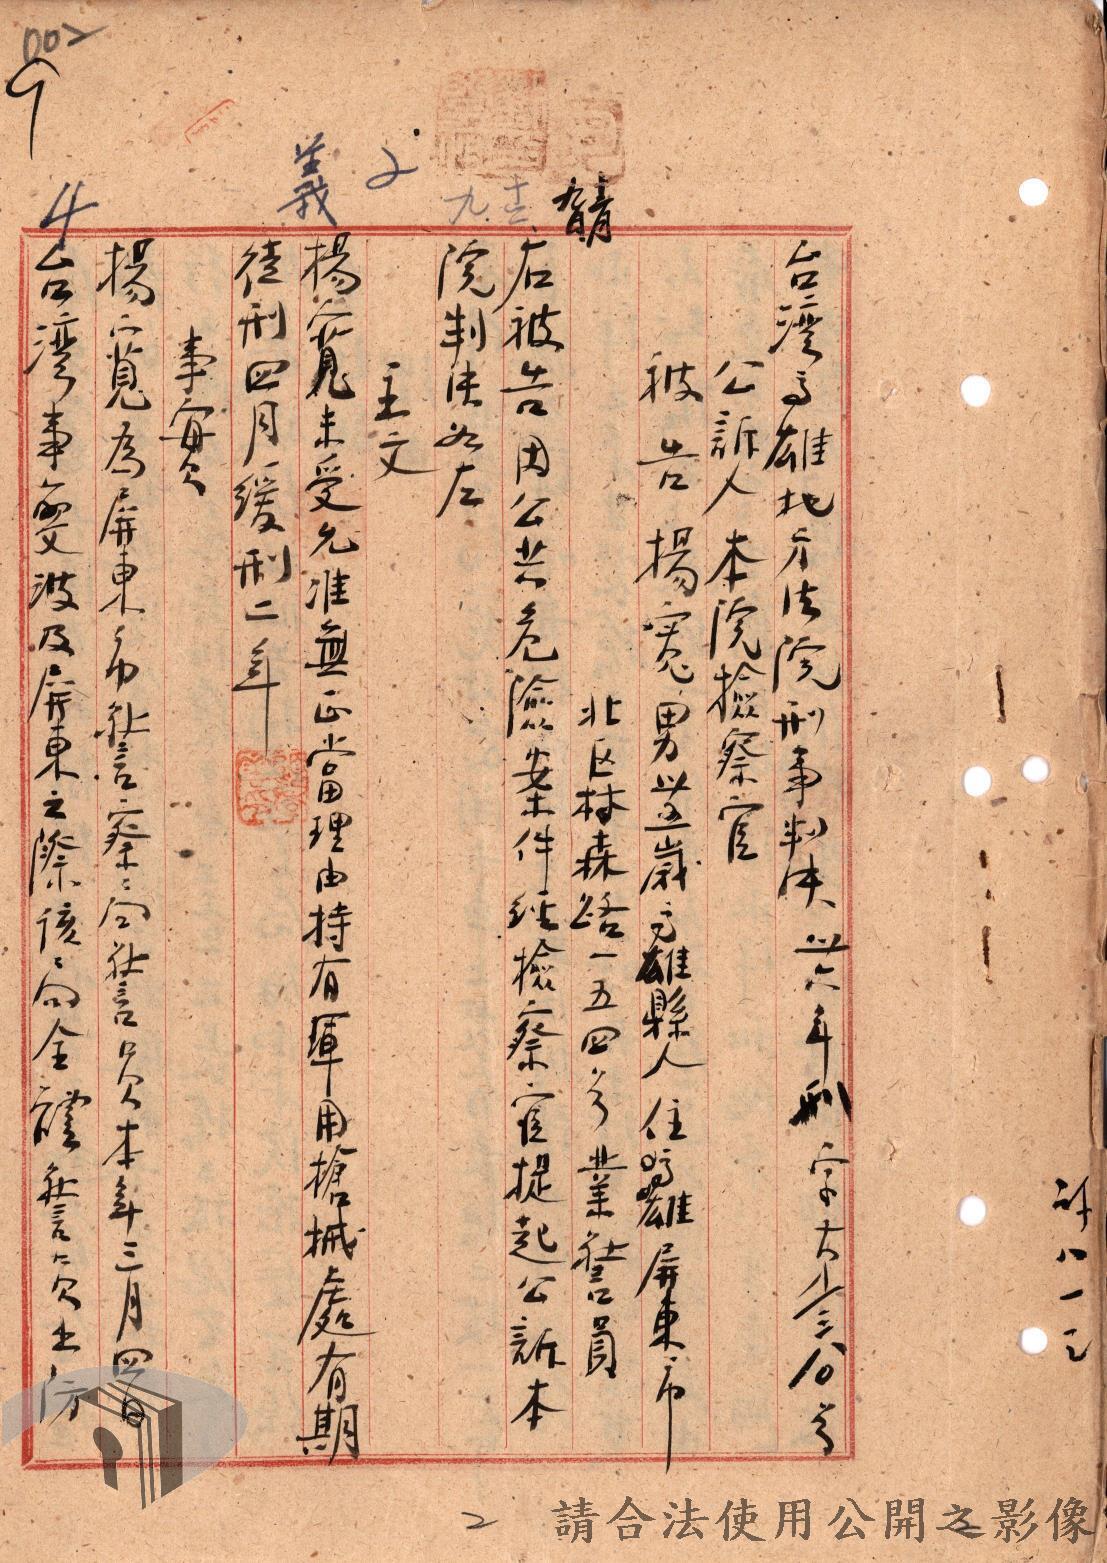 台灣高雄地方法院刑事判決 卅六年刑字
公訴人本院檢察官
被告 楊寬 男 歲高雄縣人 住高雄屏東市
北区林森路一五四号 業警員
右被告因公共危險案件經檢察官提起公訴本
院判決如左
主文
楊寬未受允准無正當理由持有軍用槍械處有期
徒刑四月緩刑二年
事實
楊寬為屏東市警察局警員本年三月四日
台灣事變波及屏東之際該局全體警員
002
4
義
2
請合法使用公開之影像